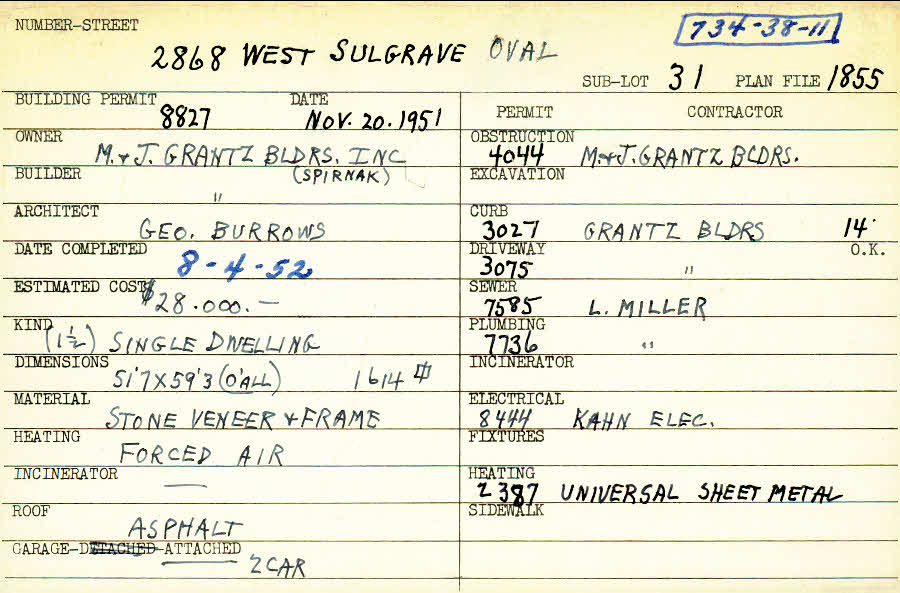 NUMBER-STREET
734-38-11
2868 WEST SULGRAVE OVAL
SUB-LOT 31 PLAN FILE 1855
BUILDING PERMIT 8827 DATE NOV. 20. 1951
OWNER M. & J. GRANTZ BLDRS. INC
BUILDER (SPIRNAK)
"
ARCHITECT GEO. BURROWS
DATE COMPLETED 8-4-52
ESTIMATED COST $28.000.—
KIND (1 1/2) SINGLE DWELLING
DIMENSIONS 51'7 X 59'3 (O'ALL) 1614 ⏍
MATERIAL STONE VENEER & FRAME
HEATING FORCED AIR
INCINERATOR —
ROOF ASPHALT
GARAGE-DETACHED-ATTACHED 2 CAR
PERMIT CONTRACTOR
OBSTRUCTION 4044 M. & J. GRANTZ BLDRS.
EXCAVATION
CURB 3027 GRANTZ BLDRS 14'
DRIVEWAY 3075 " O.K.
SEWER 7585 L. MILLER
PLUMBING 7736 "
INCINERATOR
ELECTRICAL 8444 KAHN ELEC.
FIXTURES
HEATING 2387 UNIVERSAL SHEET METAL
SIDEWALK